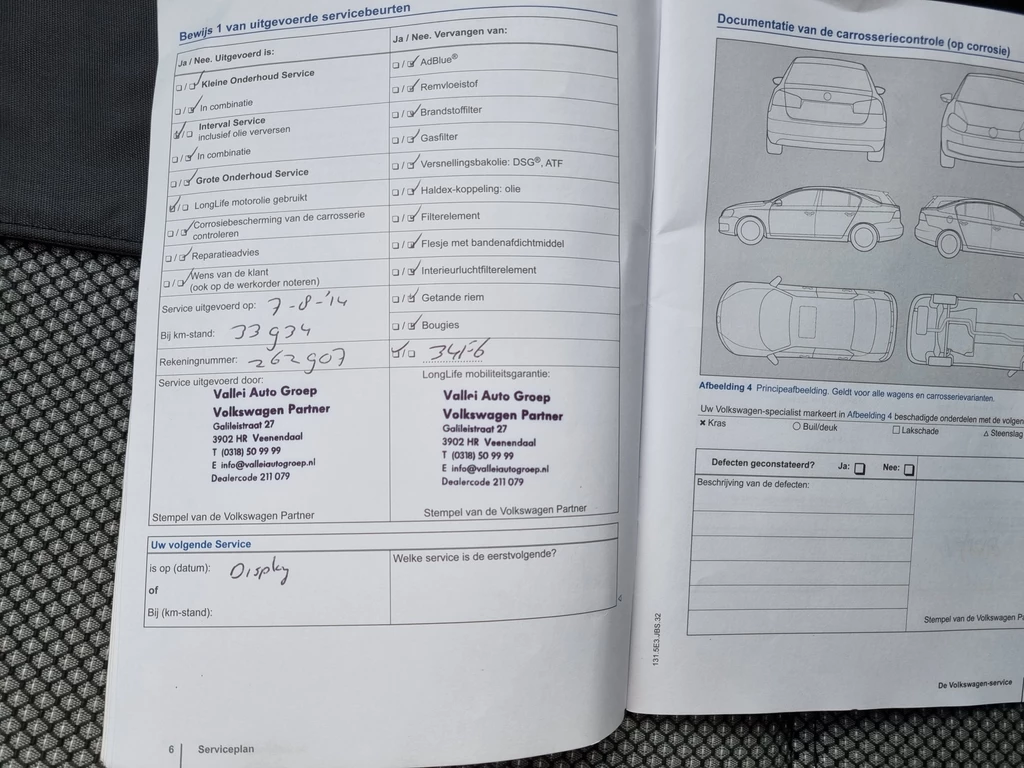 Bewijs 1 van uitgevoerde servicebeurten
Ja / Nee. Uitgevoerd is:
Kleine Onderhoud Service
In combinatie
Interval Service
inclusief olie verversen
In combinatie
Grote Onderhoud Service
LongLife motorolie gebruikt
Corrosiebescherming van de carrosserie
controleren
Reparatieadvies
Wens van de klant
(ook op de werkorder noteren)
Service uitgevoerd op: 7-8-'14
Bij km-stand: 33934
Rekeningnummer: 262907
Service uitgevoerd door:
Vallei Auto Groep
Volkswagen Partner
Galileistraat 27
3902 HR Veenendaal
T (0318) 50 99 99
E info@valleiautogroep.nl
Dealercode 211 079
Stempel van de Volkswagen Partner
Ja / Nee. Vervangen van:
AdBlue®
Remvloeistof
Brandstoffilter
Gasfilter
Versnellingsbakolie: DSG®, ATF
Haldex-koppeling: olie
Filterelement
Flesje met bandenafdichtmiddel
Interieurluchtfilterelement
Getande riem
Bougies
LongLife mobiliteitsgarantie:
Vallei Auto Groep
Volkswagen Partner
Galileistraat 27
3902 HR Veenendaal
T (0318) 50 99 99
E info@valleiautogroep.nl
Dealercode 211 079
Stempel van de Volkswagen Partner
Uw volgende Service
is op (datum): Display
of
Bij (km-stand):
Welke service is de eerstvolgende?
6 Serviceplan
Documentatie van de carrosseriecontrole (op corrosie)
Afbeelding 4 Principeafbeelding. Geldt voor alle wagens en carrosserievarianten.
Uw Volkswagen-specialist markeert in Afbeelding 4 beschadigde onderdelen met de
Kras
Buil/deuk
Lakschade
Steenslag
Defecten geconstateerd? Ja: Nee:
Beschrijving van de defecten:
Stempel van de Volkswagen
131.5E3.JBS.32
De Volkswagen-service